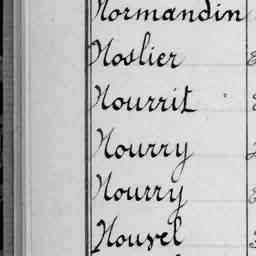 Normandin
Noslier
Nourrit
Nourry
Nourry
Nouvel